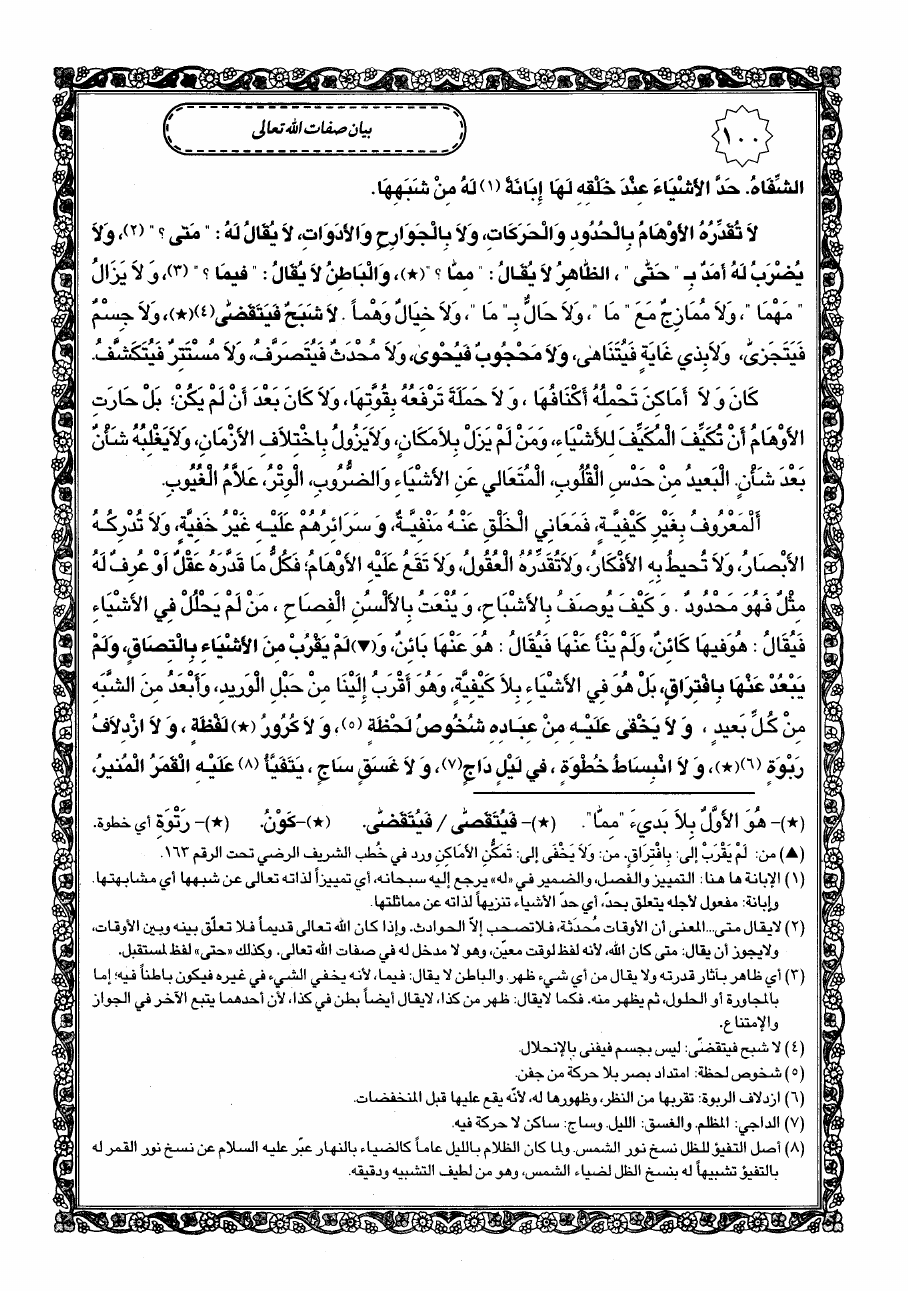 ١٠٠
بيان صفات الله تعالى
الشِّفَاهُ. حَدَّ الأَشْيَاءَ عِنْدَ خَلْقِهِ لَهَا إِبَانَةً (١) لَهُ مِنْ شَبَهِهَا.
لاَ تُقَدِّرُهُ الأَوْهَامُ بِالْحُدُودِ وَالْحَرَكَاتِ، وَلاَ بِالْجَوَارِحِ وَالأَدَوَاتِ، لاَ يُقَالُ لَهُ: " مَتى ؟ " (٢)، وَلاَ
يُضْرَبُ لَهُ أَمَدٌ بِـ " حَتّى " ، الظَّاهِرُ لاَ يُقَالُ: " مِمَّا ؟ "(★)، وَالْبَاطِنُ لاَ يُقَالُ: " فيمَا ؟ " (٣)، وَ لاَ يَزَالُ
" مَهْمَا "، وَلاَ مُمَازِجٌ مَعَ " مَا "، وَلاَ حَالٌّ بِـ" مَا "، وَلاَ خَيَالٌ وَهْماً . لاَ شَبَحٌ فَيُتَقَضّى(٤)(★)، وَلاَ جِسْمٌ
فَيَتَجَزى، وَلاَبِذي غَايَةٍ فَيُتَنَاهى، وَلاَ مَحْجُوبٌ فَيُحْوى، وَلاَ مُحْدَثٌ فَيُتَصَرَّفُ، وَلاَ مُسْتَتِرٌ فَيُتَكَشَّفُ.
كَانَ وَ لاَ أَمَاكِنَ تَحْمِلُهُ أَكْنَافُهَا ، وَ لاَ حَمَلَةَ تَرْفَعُهُ بِقُوَّتِهَا، وَلاَ كَانَ بَعْدَ أَنْ لَمْ يَكُنْ؛ بَلْ حَارَتِ
الأَوْهَامُ أَنْ تُكَيِّفَ الْمُكَيِّفَ لِلأَشْيَاءِ، وَمَنْ لَمْ يَزَلْ بِلاَمَكَانٍ، وَلاَيَزُولُ بِاخْتِلاَفِ الأَزْمَانِ، وَلاَيَغْلِبُهُ شَأْنٌ
بَعْدَ شَأْنٍ. الْبَعيدُ مِنْ حَدْسِ الْقُلُوبِ، الْمُتَعَالي عَنِ الأَشْيَاءِ وَالضُّرُوبِ، الْوِتْرُ، عَلاَّمُ الْغُيُوبِ.
أَلْمَعْرُوفُ بِغَيْرِ كَيْفِيَّةٍ، فَمَعَاني الْخَلْقِ عَنْهُ مَنْفِيَّةٌ، وَ سَرَائِرُهُمْ عَلَيْهِ غَيْرُ خَفِيَّةٍ، وَلاَ تُدْرِكُهُ
الأَبْصَارُ، وَلاَ تُحيطُ بِهِ الأَفْكَارُ، وَلاَتُقَدِّرُهُ الْعُقُولُ، وَلاَ تَقَعُ عَلَيْهِ الأَوْهَامُ؛ فَكُلُّ مَا قَدَّرَهُ عَقْلٌ أَوْ عُرِفَ لَهُ
مِثْلٌ فَهُوَ مَحْدُودٌ . وَ كَيْفَ يُوصَفُ بِالأَشْبَاحِ، وَ يُنْعَتُ بِالأَلْسُنِ الْفِصَاحِ ، مَنْ لَمْ يَحْلُلْ فِي الأَشْيَاءِ
فَيُقَالُ : هُوَفيهَا كَائِنٌ، وَلَمْ يَنْأَ عَنْهَا فَيُقَالُ : هُوَ عَنْهَا بَائِنٌ، وَ(▼)لَمْ يَقْرُبْ مِنَ الأَشْيَاءِ بِالْتِصَاقٍ، وَلَمْ
يَبْعُدْ عَنْهَا بِافْتِرَاقٍ، بَلْ هُوَ فِي الأَشْيَاءِ بِلاَ كَيْفِيَّةٍ، وَهُوَ أَقْرَبُ إِلَيْنَا مِنْ حَبْلِ الْوَريدِ، وَأَبْعَدُ مِنَ الشَّبَهِ
مِنْ كُلِّ بَعيدٍ ، وَ لاَ يَخْفى عَلَيْهِ مِنْ عِبَادِهِ شُخُوصُ لَحْظَةٍ (٥)، وَ لاَ كُرُورُ (★) لَفْظَةٍ ، وَ لاَ ازْدِلاَفُ
رَبْوَةٍ (٦)(★)، وَ لاَ انْبِسَاطُ خُطْوَةٍ ، في لَيْلٍ دَاجٍ(٧)، وَ لاَ غَسَقٍ سَاجٍ ، يَتَفَيَّأُ (٨) عَلَيْهِ الْقَمَرُ الْمُنيرُ،
(★)- هُوَ الأَوَّلُ بِلاَ بَديءَ "مِمَّا". (★)- فَيُتَقَصّى / فَيُتَقَضّى. (★)-كَوْنُ. (★)- رَتْوَةٍ أي خطوة.
(▲) من: لَمْ يَقْرَبْ إلى: بِافْتِرَاقٍ. من: وَلاَ يَخْفَى إلى: تَمَكُّنِ الأَمَاكِنِ ورد في خُطب الشريف الرضي تحت الرقم ١٦٣.
(١) الإبانة ها هنا: التمييز والفصل، والضمير في «له» يرجع إليه سبحانه، أي تمييزاً لذاته تعالى عن شبهها أي مشابهتها.
وإبانة: مفعول لأجله يتعلق بحدّ، أي حدّ الأشياء تنزيهاً لذاته عن مماثلتها.
(٢) لايقال متى...المعنى أن الأوقات مُحدثة، فلاتصحب إلاّ الحوادث. وإذا كان الله تعالى قديماً فلا تعلّق بينه وبين الأوقات،
ولايجوز أن يقال: متى كان الله، لأنه لفظ لوقت معيّن، وهو لا مدخل له في صفات الله تعالى. وكذلك «حتى» لفظ لمستقبل.
(٣) أي ظاهر بآثار قدرته ولا يقال من أي شيء ظهر. والباطن لا يقال: فيما، لأنه يخفي الشيء في غيره فيكون باطناً فيه؛ إما
بالمجاورة أو الحلول، ثم يظهر منه. فكما لايقال: ظهر من كذا، لايقال أيضاً بطن في كذا، لأن أحدهما يتبع الآخر في الجواز
والإمتناع.
(٤) لا شبح فيتقضّى: ليس بجسم فيفنى بالإنحلال.
(٥) شخوص لحظة: امتداد بصر بلا حركة من جفن.
(٦) ازدلاف الربوة: تقربها من النظر، وظهورها له، لأنّه يقع عليها قبل المنخفضات.
(٧) الداجي: المظلم. والغسق: الليل. وساج: ساكن لا حركة فيه.
(٨) أصل التفيؤ للظل نسخ نور الشمس. ولما كان الظلام بالليل عاماً كالضياء بالنهار عبّر عليه السلام عن نسخ نور القمر له
بالتفيؤ تشبيهاً له بنسخ الظل لضياء الشمس، وهو من لطيف التشبيه ودقيقه.